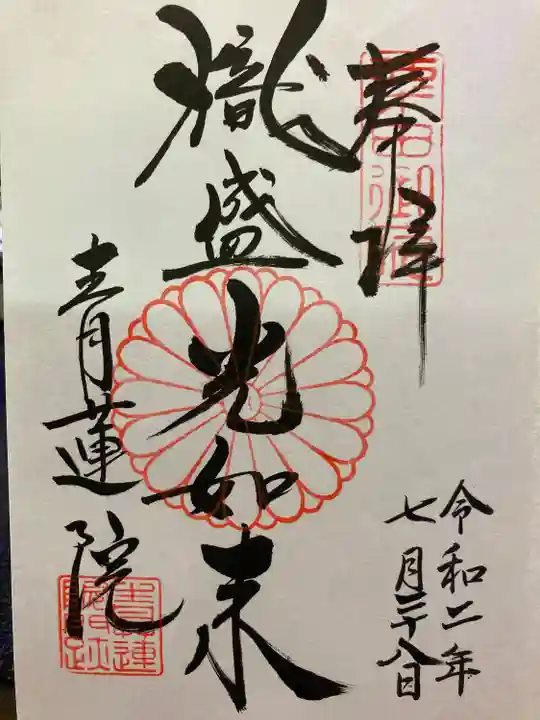 奉拝
熾盛光如来
青蓮院
青蓮
院門跡
令和二年
七月二十八日